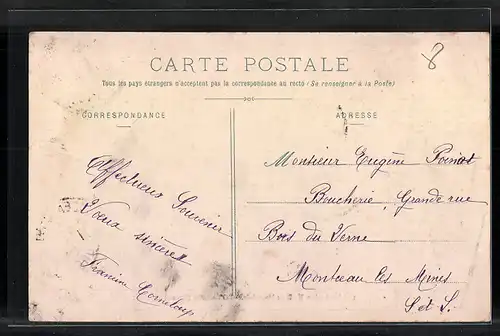 CARTE POSTALE
Tous les pays étrangers n'acceptent pas la correspondance au recto (Se renseigner à la Poste)
8
CORRESPONDANCE
Affectueux Souvenir
Voeux sincères
Francine Corneloup
ADRESSE
Monsieur Eugène Poinot
Boucherie, Grande rue
Bois du Verne
Montceau les Mines
S et L.